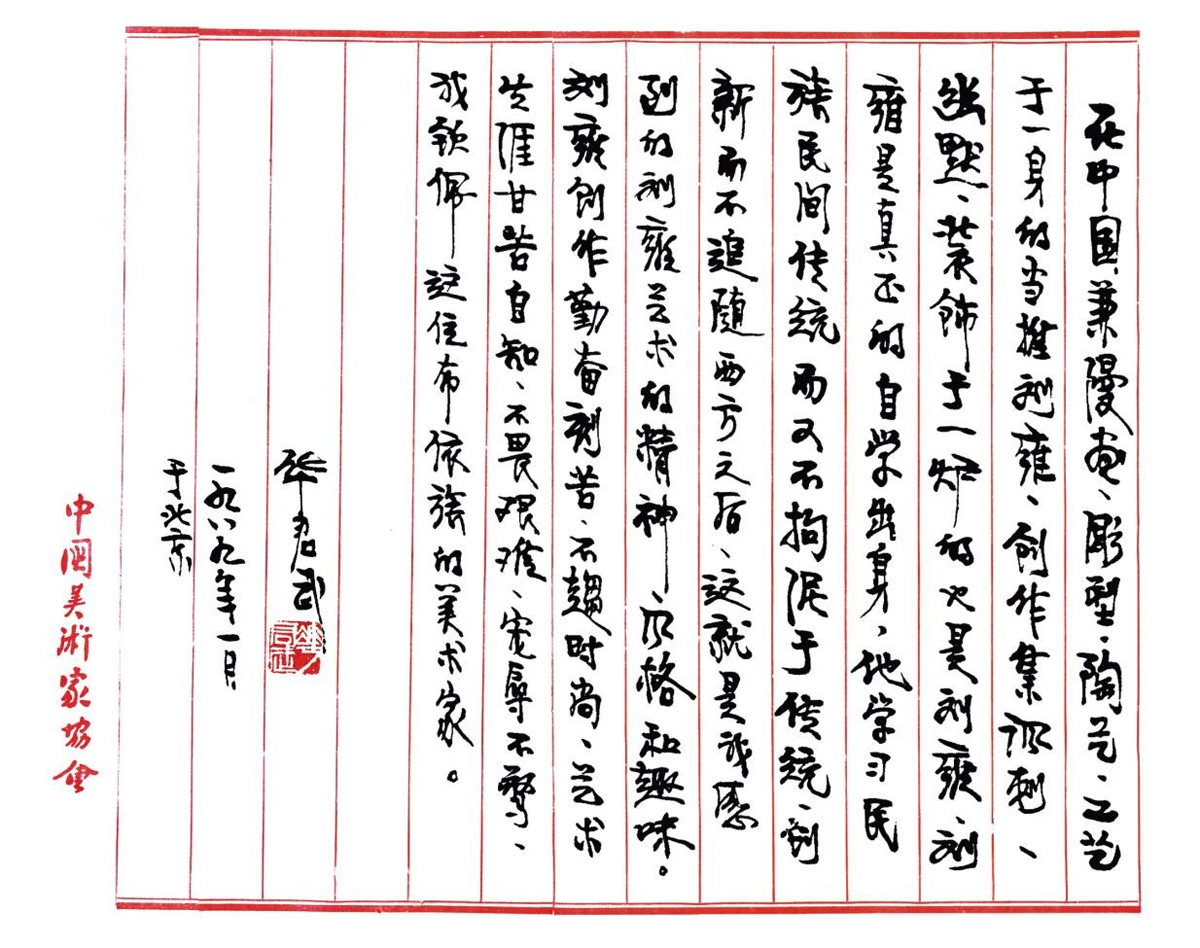 在中国兼漫画、雕塑、陶艺、工艺
于一身的当推刘雍、创作集讽刺、
幽默、装饰于一炉的也是刘雍、刘
雍是真正的自学出身，他学习民
族民间传统而又不拘泥于传统、创
新而不追随西方之后、这就是我感
到的刘雍艺术的精神、风格和趣味。
刘雍创作勤奋刻苦、不趋时尚、艺术
生涯甘苦自知、不畏艰难、宠辱不惊、
我钦佩这位布依族的美术家。
华君武
一九八九年一月
于北京
中国美術家协会